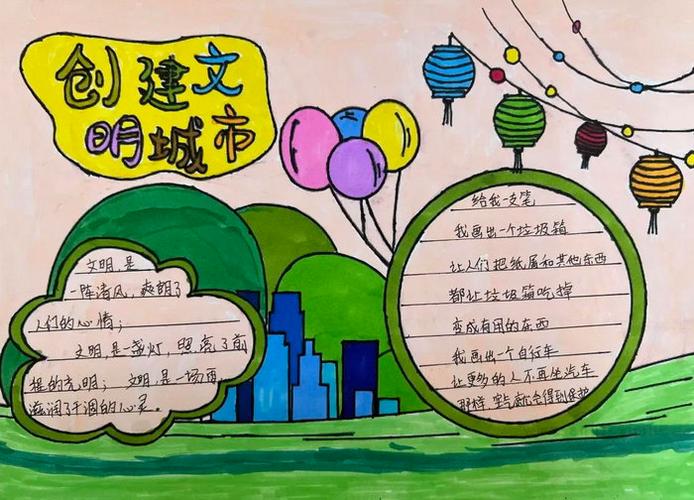 创建文
明城市
文明,是
一阵清风,爽朗了
人们的心情;
文明,是盏灯,照亮了前
程的光明; 文明,是一场雨,
滋润了干涸的心灵。
给我一支笔
我画出一个垃圾箱
让人们把纸屑和其他东西
都让垃圾箱吃掉
变成有用的东西
我画出一个自行车
让更多的人不再坐汽车
那样 就会得到保护